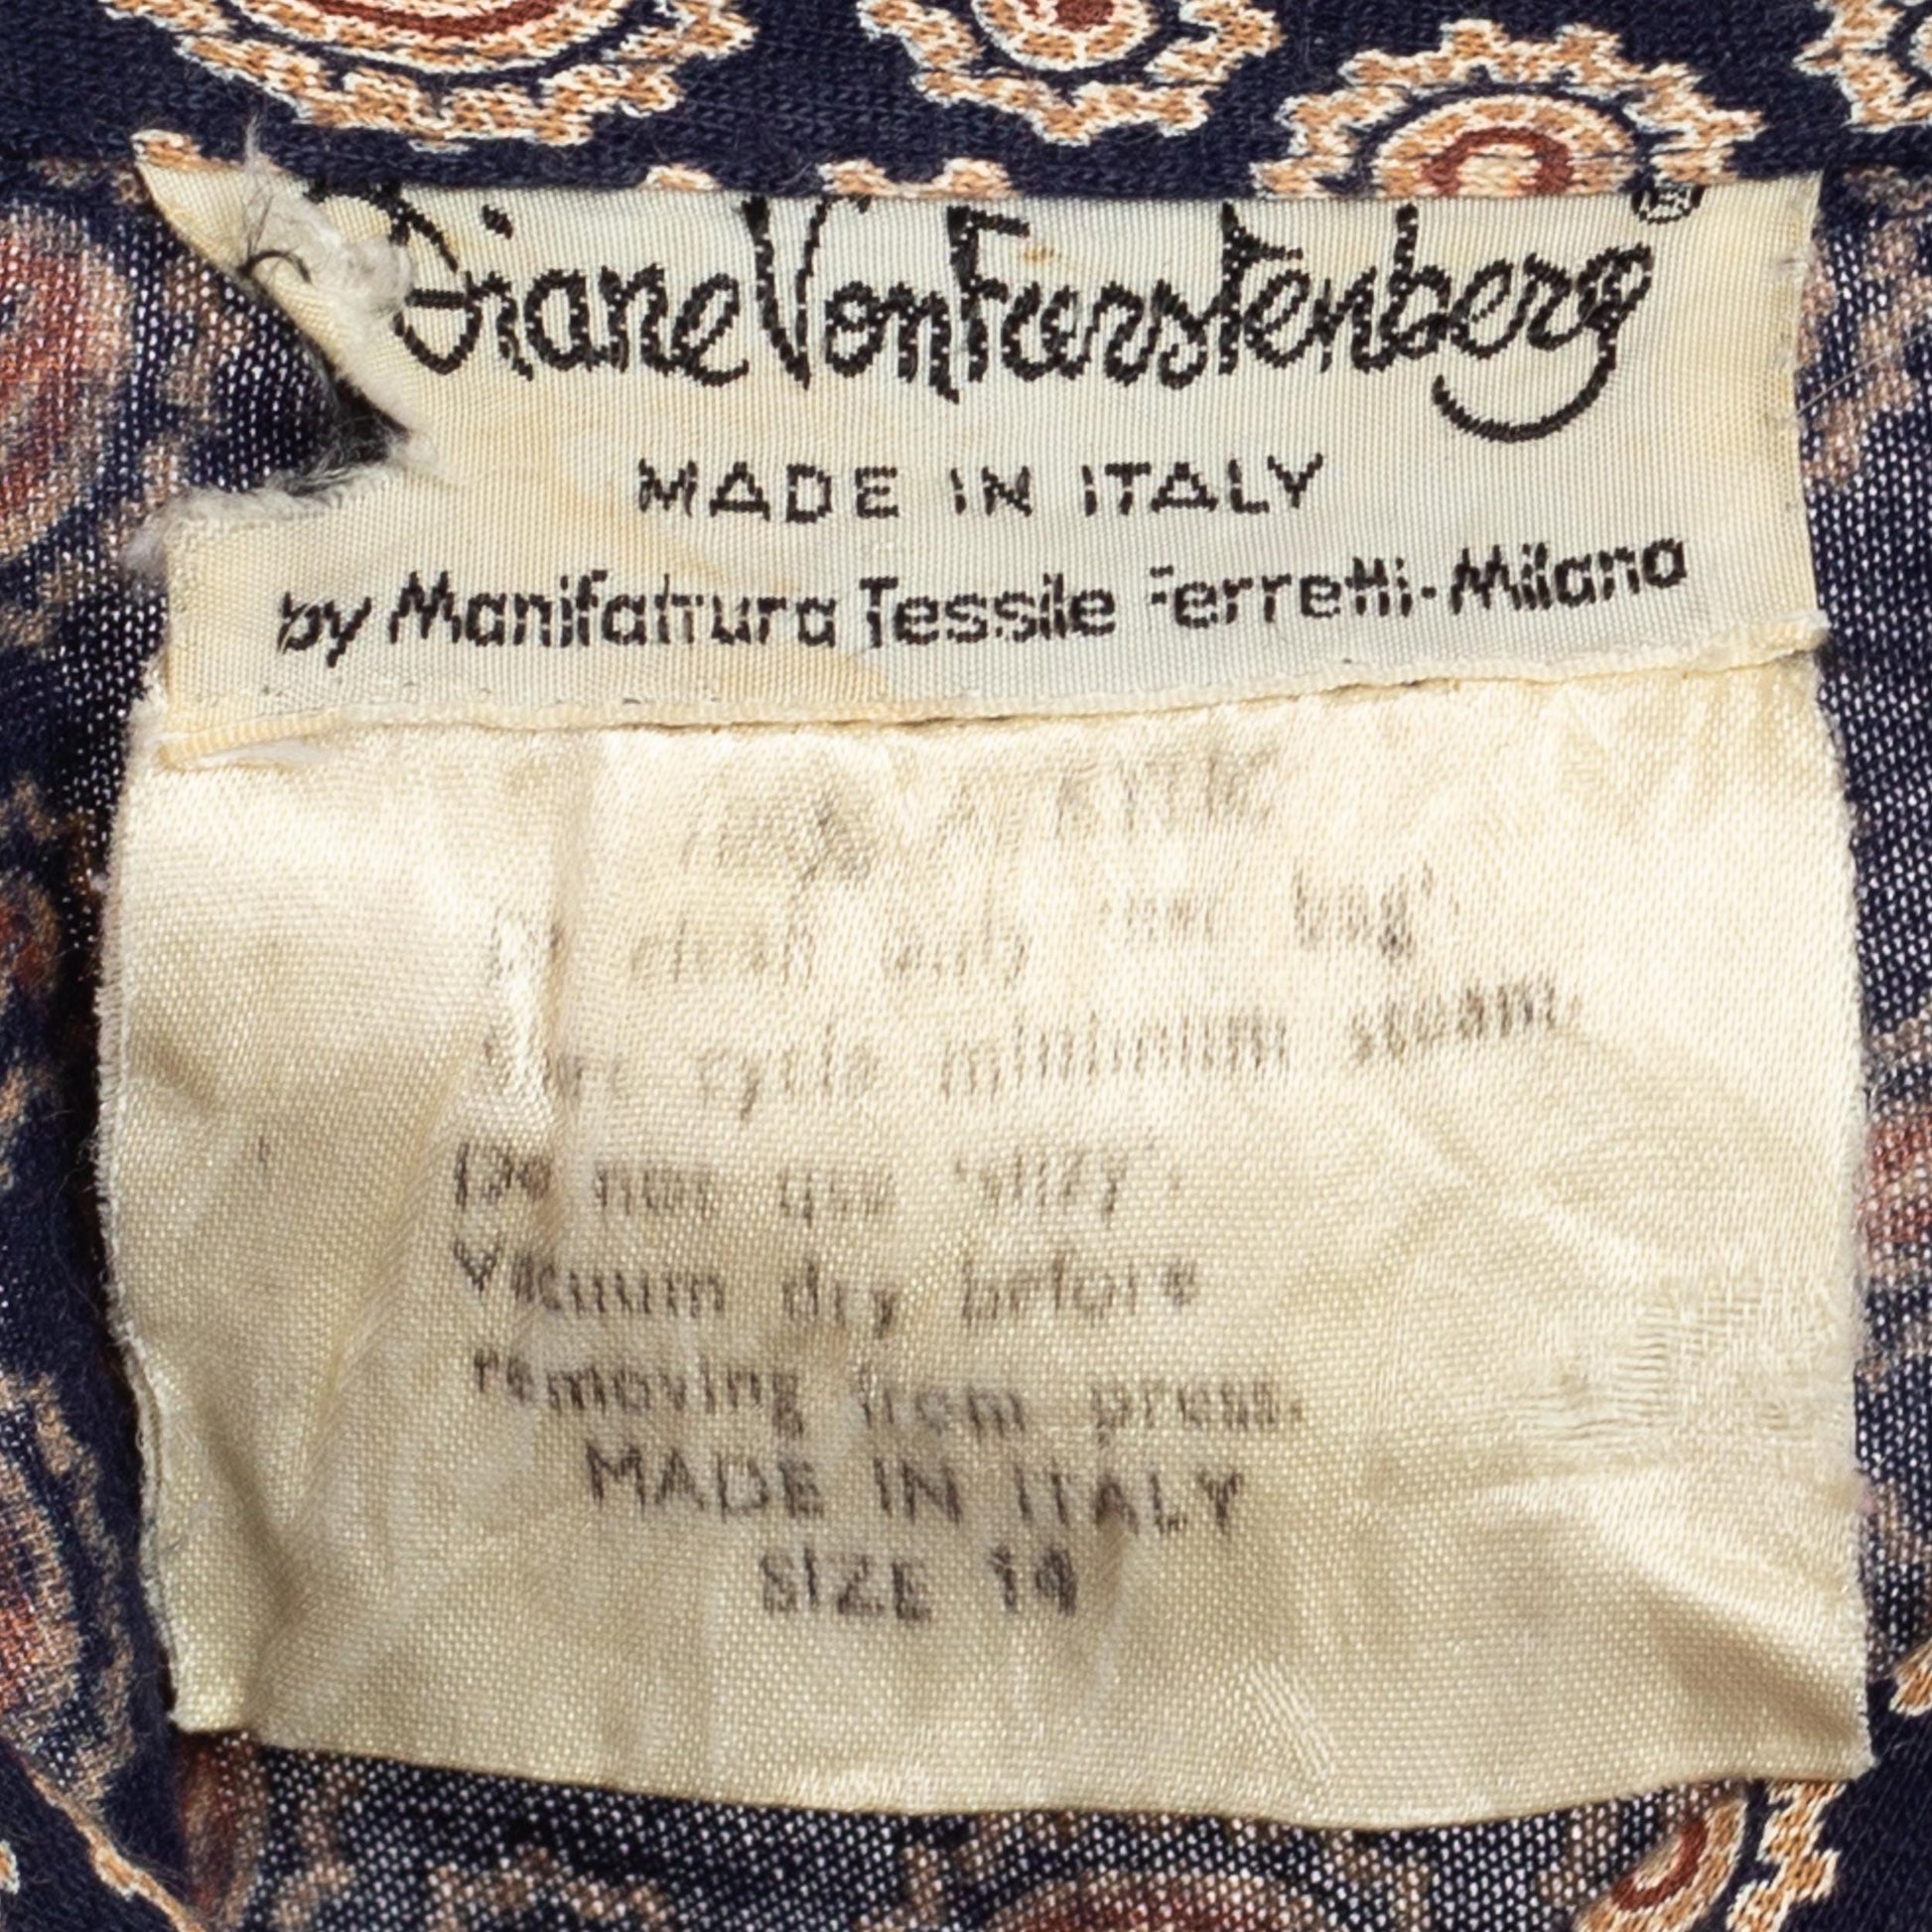 Diane Von Furstenberg ®
MADE IN ITALY
by Manifattura Tessile Ferretti-Milano
clean only net bag
cycle minimum steam.
Do not use
Vacuum dry before
removing from press.
MADE IN ITALY
SIZE 14